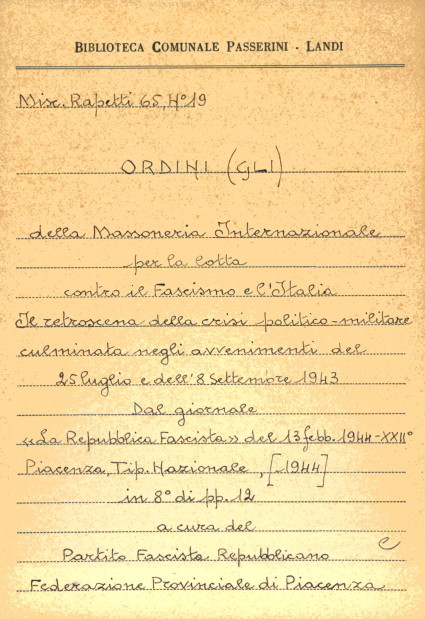 BIBLIOTECA COMUNALE PASSERINI - LANDI
Misc. Rapetti 65, N° 19
ORDINI (GLI)
della Massoneria Internazionale
per la lotta
contro il Fascismo e l'Italia
Il retroscena della crisi politico-militare
culminata negli avvenimenti del
25 luglio e dell'8 Settembre 1943
Dal giornale
«La Repubblica Fascista» del 13 febb. 1944-XXII°
Piacenza, Tip. Nazionale, [1944]
in 8° di pp. 12
a cura del
Partito Fascista Repubblicano
e
Federazione Provinciale di Piacenza